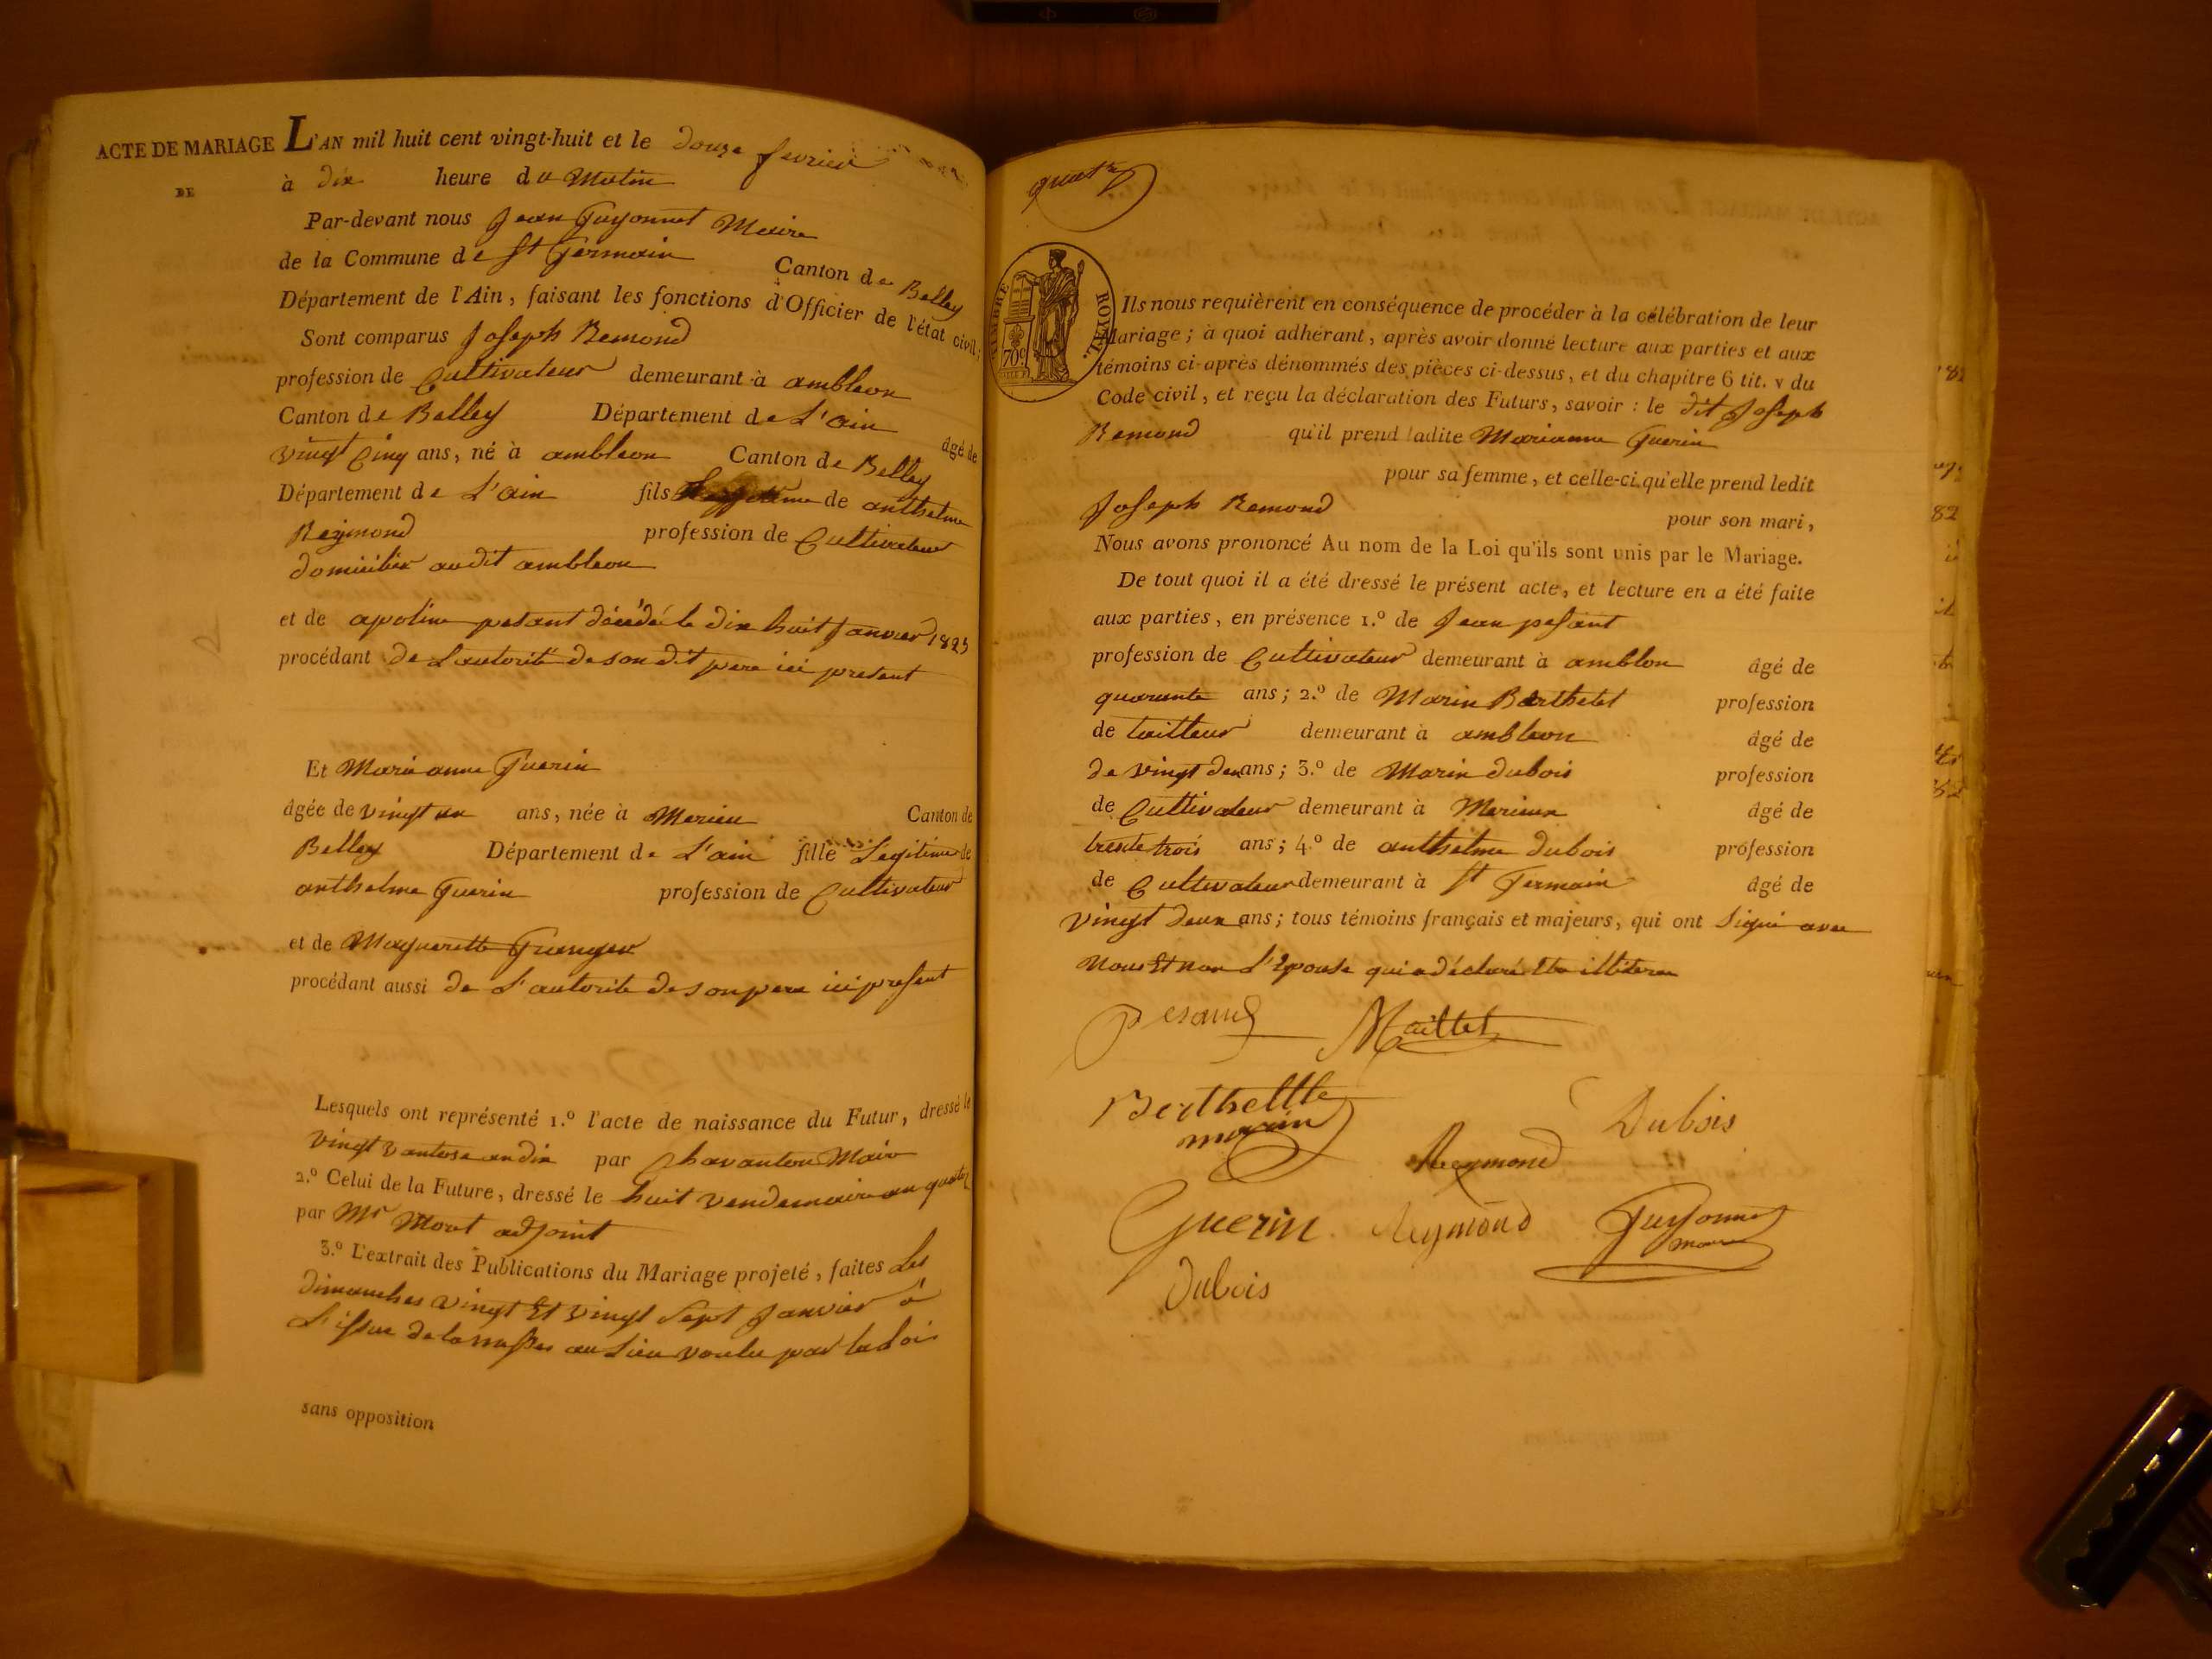 ACTE DE MARIAGE
DE
L'AN mil huit cent vingt-huit et le douze fevrier
à dix heure du Matin
Par-devant nous Jean Guyonnet Maire
de la Commune de St Germain Canton de Belley
Département de l'Ain, faisant les fonctions d'Officier de l'état civil,
Sont comparus Joseph Remond
profession de Cultivateur demeurant à ambleon
Canton de Belley Département de L'ain âgé de
vingt Cinq ans, né à ambleon Canton de Belley
Département de L'ain fils de anthelme
Reymond profession de Cultivateur
domicilier audit ambleon
et de apoline pesant décédé le dix huit Janvier 1823
procédant de L'autorité de son dit pere ici present
Et Marianne Guerin
âgée de vingt un ans, née à Merieu Canton de
Belley Département de L'ain fille Legitime de
anthelme Guerin profession de Cultivateur
et de Margueritte
procédant aussi de L'autorite de son pere ici present
Lesquels ont représenté 1.º l'acte de naissance du Futur, dressé le
vingt vantose an dix par Chavanton Maire
2.º Celui de la Future, dressé le huit vendemaire an quatorz
par Mr Moret adjoint
3.º L'extrait des Publications du Mariage projeté, faites Les
dimanches vingt Et vingt Sept Janvier à
L'issue de la messes au Lieu voulu par la Loi
sans opposition
quatre
TIMBRE ROYAL.
70c
Ils nous requièrent en conséquence de procéder à la célébration de leur
Mariage; à quoi adhérant, après avoir donné lecture aux parties et aux
témoins ci-après dénommés des pièces ci-dessus, et du chapitre 6 tit. v du
Code civil, et reçu la déclaration des Futurs, savoir : le dit Joseph
Remond qu'il prend ladite Marianne Guerin
pour sa femme, et celle-ci qu'elle prend ledit
Joseph Remond pour son mari,
Nous avons prononcé Au nom de la Loi qu'ils sont unis par le Mariage.
De tout quoi il a été dressé le présent acte, et lecture en a été faite
aux parties, en présence 1.º de Jean pesant
profession de Cultivateur demeurant à amblon âgé de
quarante ans; 2.º de Marin Berthelet profession
de tailleur demeurant à ambleon âgé de
de vingt deux ans; 3.º de Marin dubois profession
de Cultivateur demeurant à Merieux âgé de
trente trois ans; 4.º de anthelme dubois profession
de Cultivateur demeurant à St Germain âgé de
vingt deux ans; tous témoins français et majeurs, qui ont Signé avec
nous Et non L'Epouse qui a déclaré Etre illiteree
Pesant Maillet
Berthellte
marin
Dubois
Reymond
Guerin Reymond Guyonnet
maire
dubois